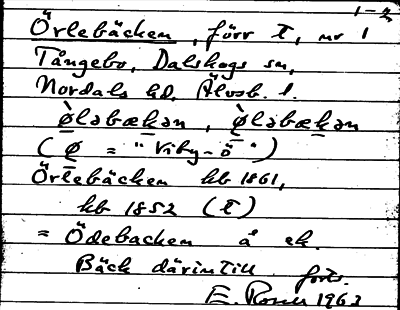 1-2
Örlebäcken, förr t, nr 1
Tångebo, Dalskogs sn,
Nordals hd, Älvsb. l.
ø̀ləbækən, ø̀ləbækən
(ø = "Viby-ö")
Örlebäcken kb 1861,
kb 1852 (t)
= Ödebacken å ek.
Bäck därintill forts.
E. Rosell 1963